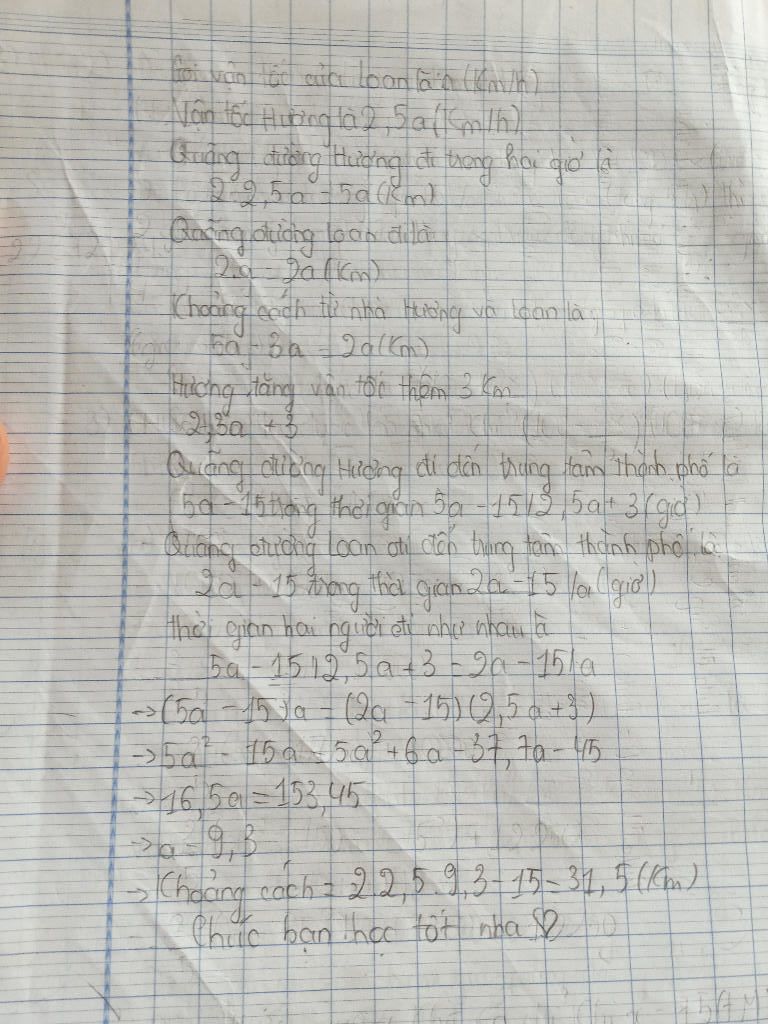 Gọi vận tốc của Loan là a (Km/h)
Vận tốc Hường là 2,5a (Km/h)
Quãng đường Hương đi trong hai giờ là
2.2,5a = 5a (Km)
Quãng đường Loan đi là
2.a = 2a (Km)
Khoảng cách từ nhà Hương và Loan là,
5a - 3a = 2a (Km)
Hương tăng vận tốc thêm 3 Km
2,3a + 3
Quãng đường Hương đi đến trung tâm thành phố là
5a - 15 trong thời gian 5a - 15/2,5a + 3 (giờ)
Quãng đường Loan đi đến trung tâm thành phố là
2a - 15 trong thời gian 2a - 15/a (giờ)
thời gian hai người đi như nhau là
5a - 15/2,5a + 3 = 2a - 15/a
→ (5a - 15)a = (2a - 15)(2,5a + 3)
→ 5a² - 15a = 5a² + 6a - 37,7a - 45
→ 16,5a = 153,45
→ a = 9,3
→ Khoảng cách = 2.2,5.9,3 - 15 = 31,5 (Km)
Chúc bạn học tốt nha ♡